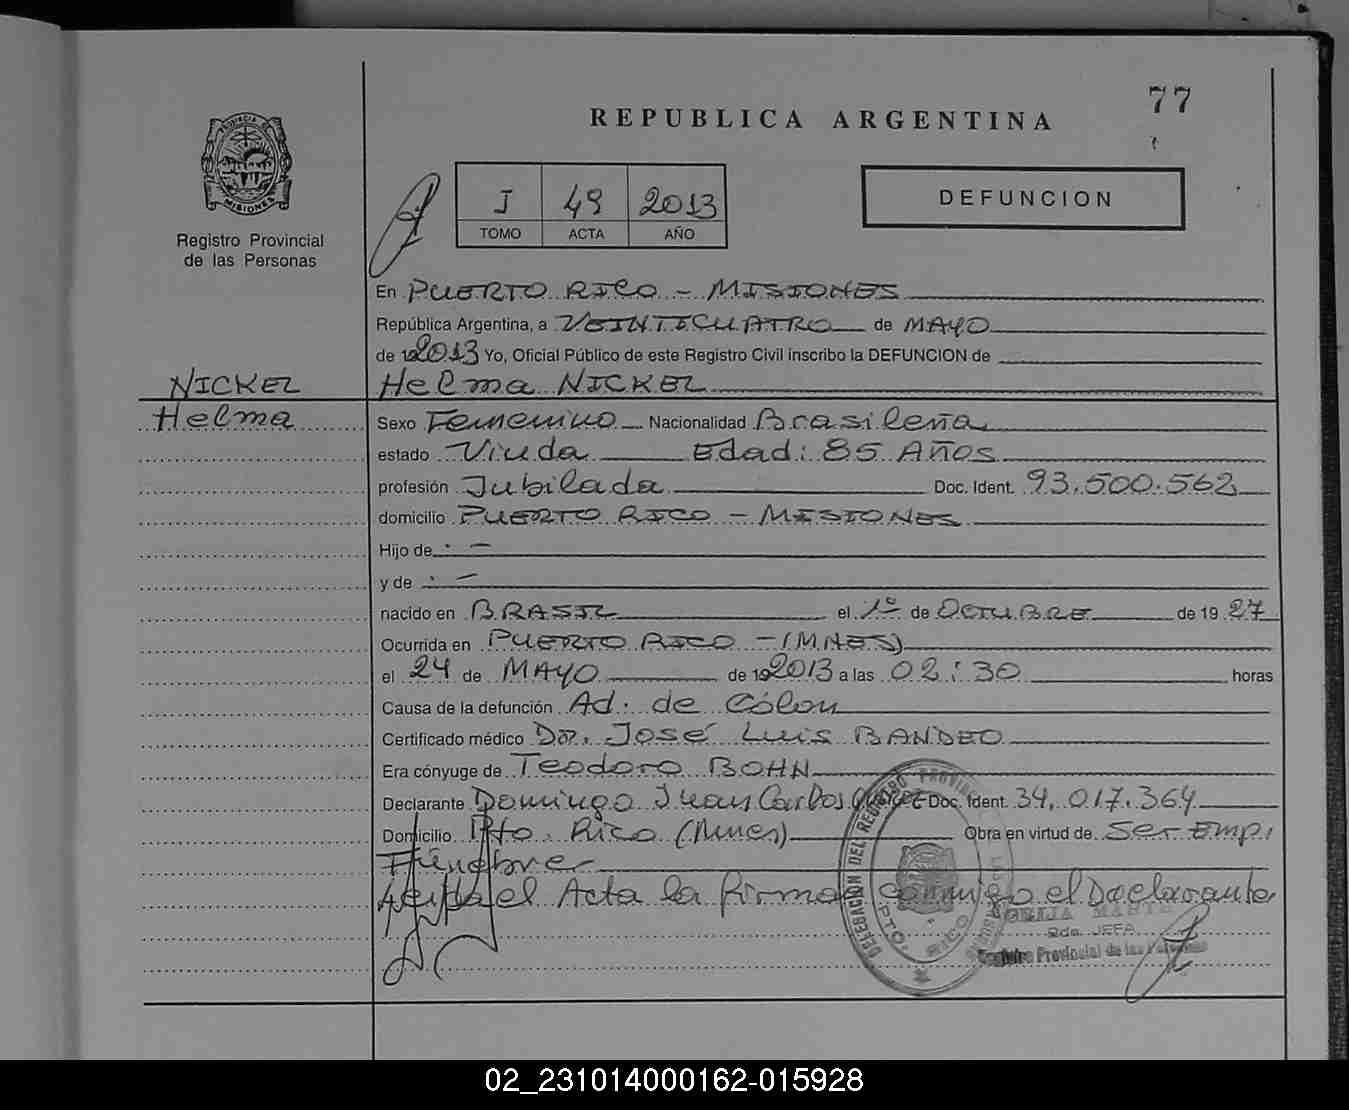 77
REPUBLICA ARGENTINA
PROVINCIA DE MISIONES
Registro Provincial
de las Personas
I 49 2013
TOMO ACTA AÑO
DEFUNCION
En PUERTO RICO - MISIONES
República Argentina, a VEINTICUATRO de MAYO
de 2013 Yo, Oficial Público de este Registro Civil inscribo la DEFUNCION de
NICKEL Helma NICKEL
Helma Sexo Femenino Nacionalidad Brasileña
estado Viuda Edad: 85 Años
profesión Jubilada Doc. Ident. 93.500.562
domicilio PUERTO RICO - MISIONES
Hijo de . -
y de . -
nacido en BRASIL el 1º de OCTUBRE de 19 27
Ocurrida en PUERTO RICO - (MNES)
el 24 de MAYO de 2013 a las 02:30 horas
Causa de la defunción Ad. de Cólon
Certificado médico Dr. José Luis BANDEO
Era cónyuge de Teodoro BOHN
Declarante Domingo Juan Carlos Doc. Ident. 34.017.364
Domicilio Pto. Rico (Mnes) Obra en virtud de Ser. Emp.
Fúnebre
Leida el Acta la firma conmigo el Declarante
DELEGACION DEL REGISTRO PROVINCIAL DE LAS PERSONAS
PTO. RICO
2da. JEFA
Registro Provincial de las Personas
02_231014000162-015928